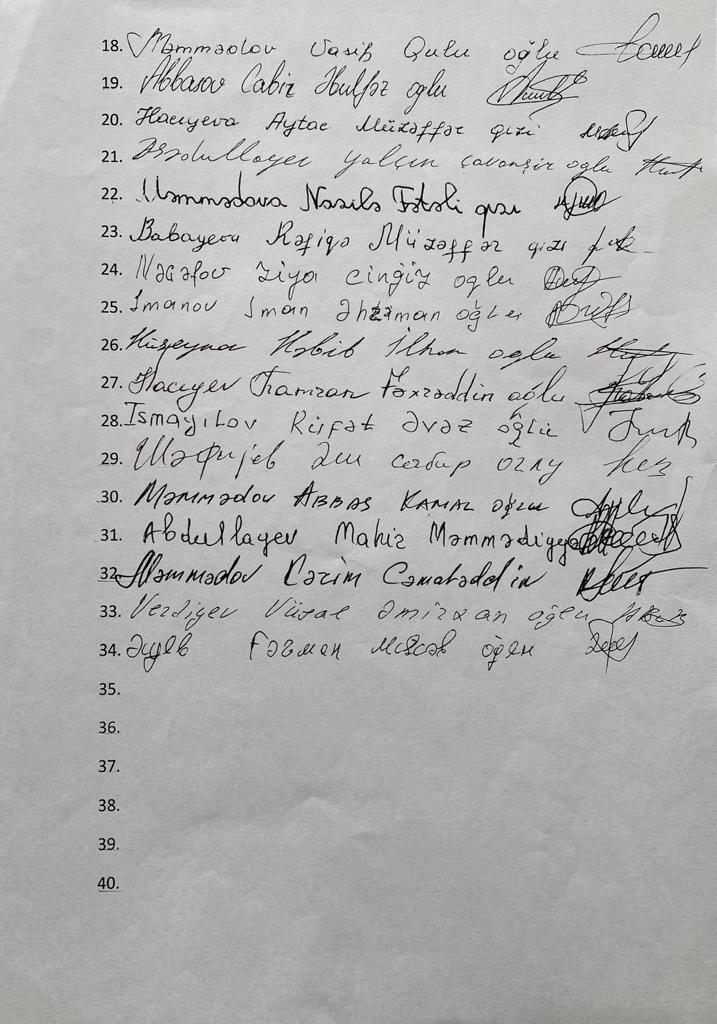 18. Məmmədov Vasif Qulu oğlu
19. Abbasov Cabir Əbulfəz oglu
20. Hacıyeva Aytac Müzəffər qızı
21. Əsədullayev Yalçın Cavanşir oglu
22. Məmmədova Nazilə Fətəli qızı
23. Babayeva Rəfiqə Müzəffər qızı
24. Nəcəfov Ziya Cingiz oglu
25. İmanov İman Əhrəman oğlu
26. Həbib İlham oglu
27. Hacıyev Ramzan Fəxrəddin oğlu
28. Ismayılov Rüfət Əvəz oğlu
29. оглу
30. Məmmədov Abbas Kamal oğlu
31. Abdullayev Mahir Məmmədiyya
32. Məmmədov Kərim Cəmaləddin
33. Verdiyev Vüsal Əmirxan oğlu
34. Fərman oğlu
35.
36.
37.
38.
39.
40.